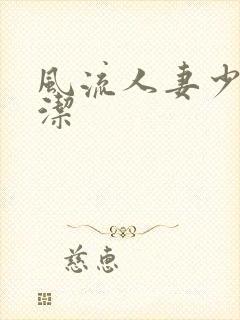 風流人妻少
潔
慈惠